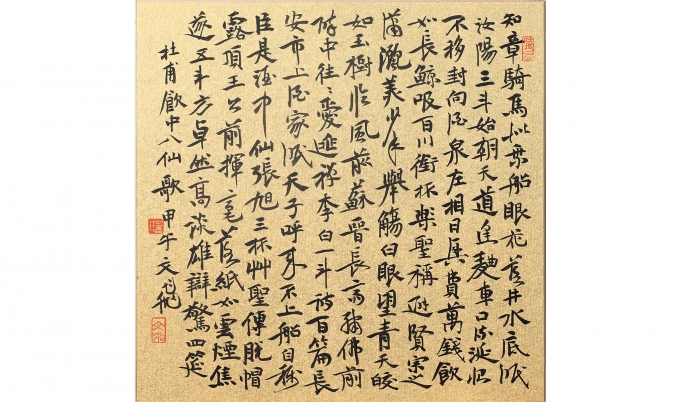 知章騎馬似乘船眼花落井水底眠
汝陽三斗始朝天道逢麴車口流涎恨
不移封向酒泉左相日興費萬錢飲
如長鯨吸百川銜杯樂聖稱避賢宗之
瀟灑美少年舉觴白眼望青天皎
如玉樹臨風前蘇晉長齋繡佛前
醉中往〻愛逃禪李白一斗詩百篇長
安市上酒家眠天子呼來不上船自稱
臣是酒中仙張旭三杯艸聖傳脫帽
露頂王公前揮毫落紙如雲煙焦
遂五斗方卓然高談雄辯驚四筵
杜甫飲中八仙歌甲午文